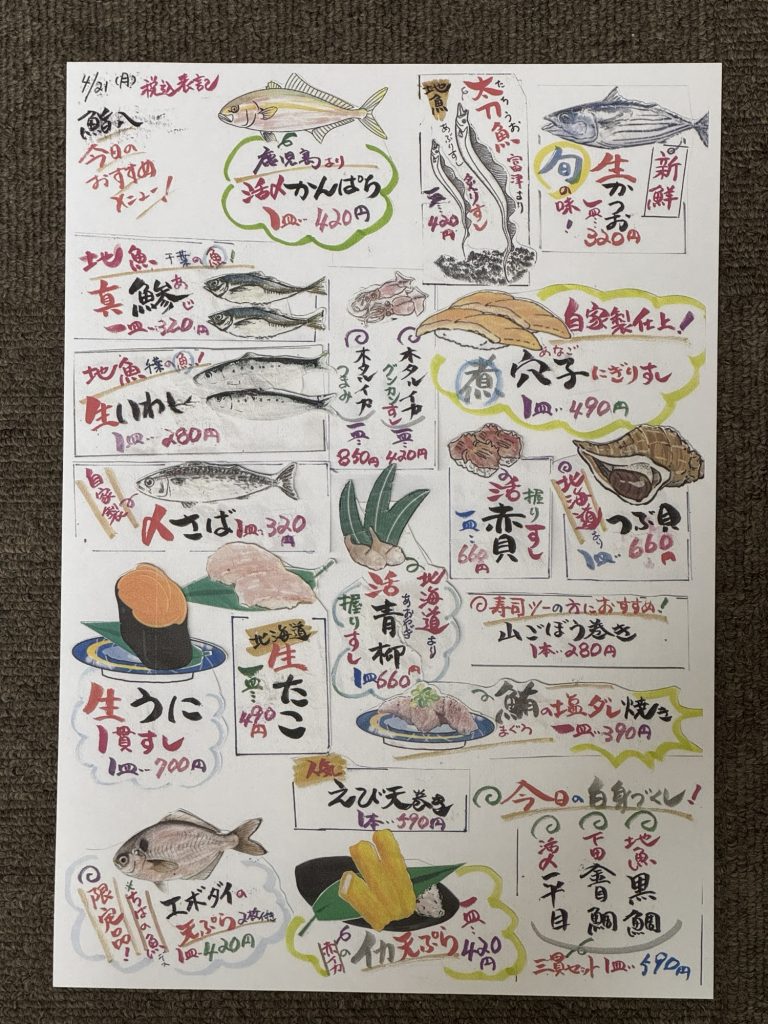 4/21(月) 税込表記
鮨八
今日の
おすすめ
メニュー!
鹿児島より
活〆かんぱち
1皿…420円
地魚
たちうお
太刀魚
富津より
あぶりすし
炙りすし
一皿…420円
新鮮
生かつお
一皿…320円
旬の味!
地魚 千葉の魚
あじ
真鯵
一皿…320円
地魚 千葉の魚!
生いわし
1皿…280円
ホタルイカ
グンカンすし
一皿…420円
ホタルイカ
つまみ
一皿…850円
自家製仕上!
あなご
煮穴子にぎりすし
1皿…490円
自家製
〆さば 1皿…320円
握りすし
活赤貝
一皿…660円
北海道より
つぶ貝
1皿…660円
北海道より
あおやぎ
活青柳
握りすし
1皿660円
寿司ツーの方におすすめ!
山ごぼう巻き
1本…280円
生うに
1貫すし
1皿…700円
北海道
生たこ
一皿…490円
鮪の塩ダレ焼き
まぐろ
一皿…390円
人気
えび天巻き
1本…590円
今日の白身づくし!
地魚黒鯛
下田金目鯛
活〆平目
三貫セット1皿…590円
限定品!
ちばの魚
エボダイの
天ぷら2枚付き
1皿…420円
イカ天ぷら
一皿…420円